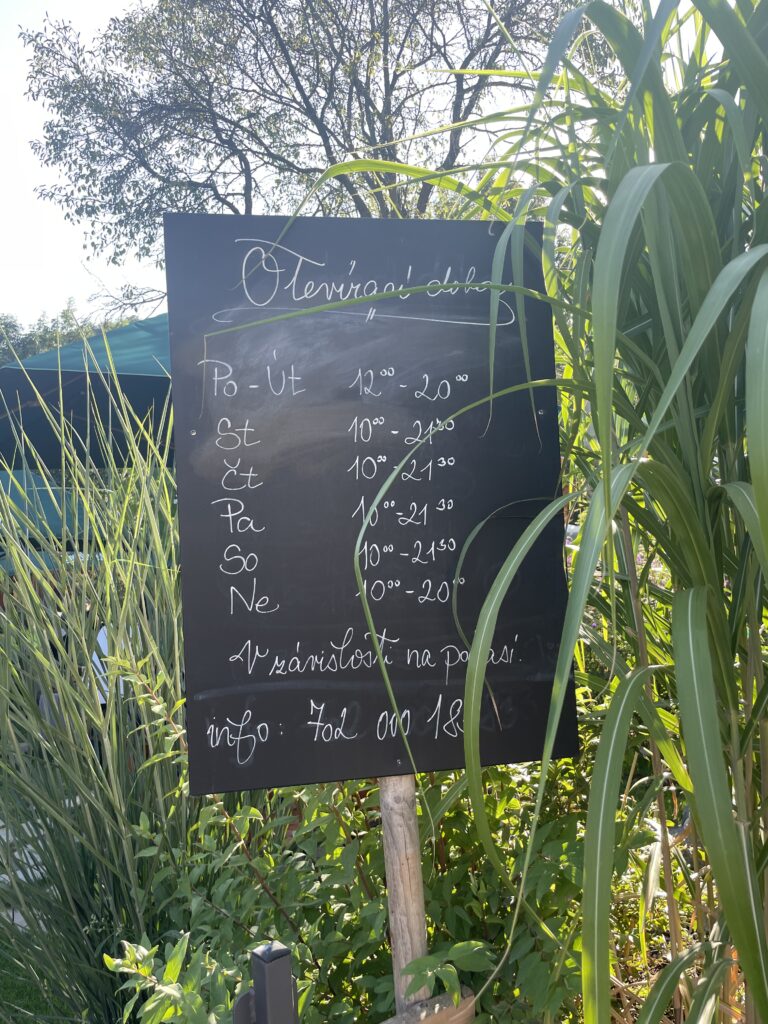 Otevírací doba
Po - Út 12⁰⁰ - 20⁰⁰
St 10⁰⁰ - 21³⁰
Čt 10⁰⁰ - 21³⁰
Pa 10⁰⁰ - 21³⁰
So 10⁰⁰ - 21³⁰
Ne 10⁰⁰ - 20⁰⁰
V závislosti na počasí.
info: 702 000